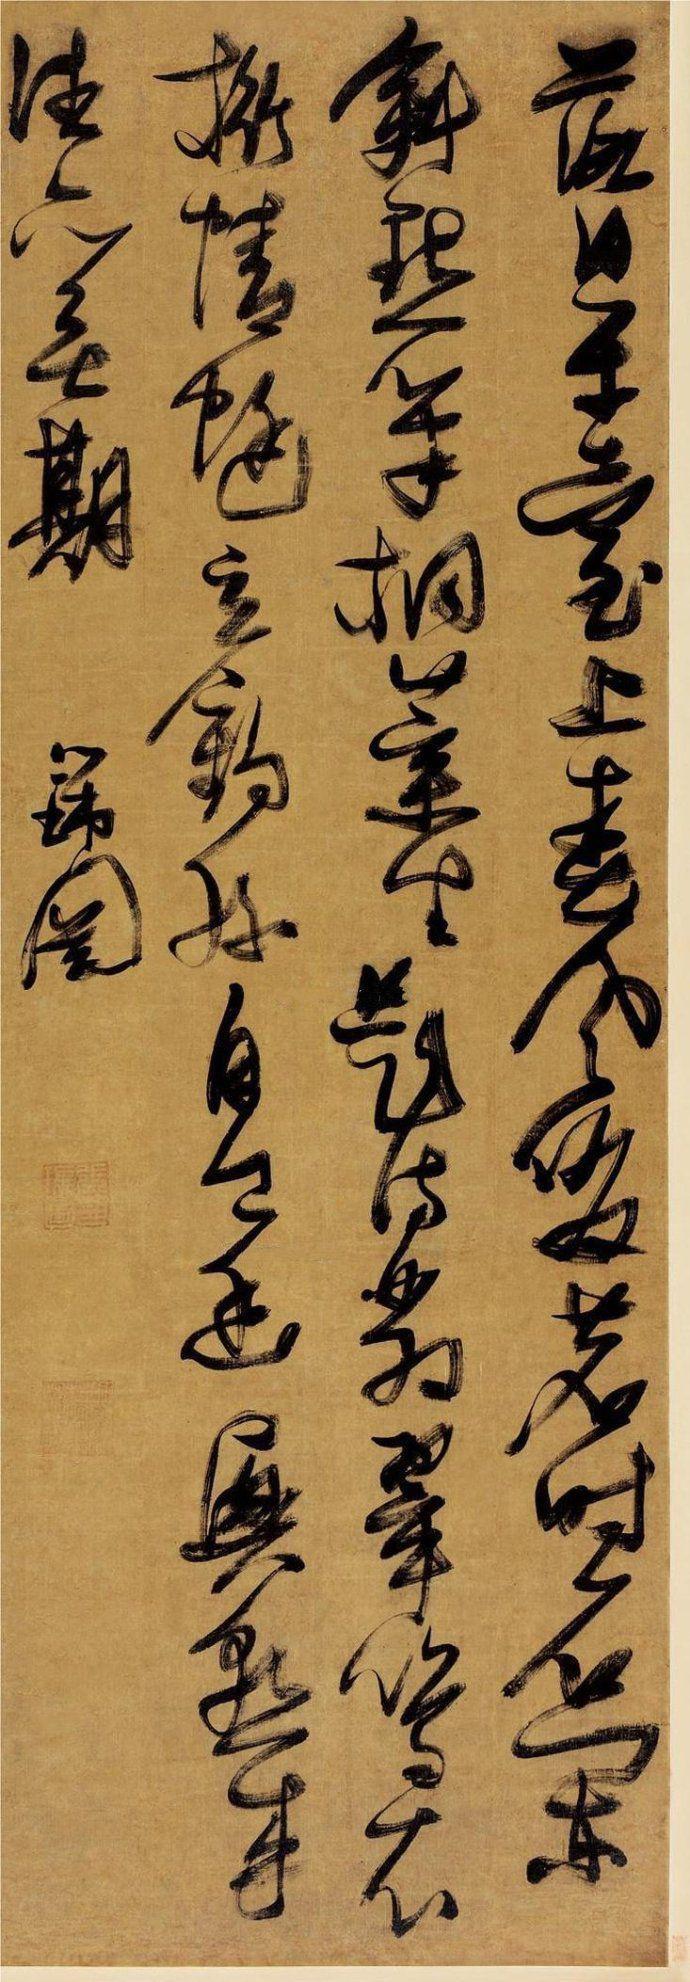 落日平臺上春風啜茗時石闌
斜點筆桐葉坐題詩翡翠鳴衣
桁蜻蜓立釣絲自今幽興熟來
往亦無期 瑞圖